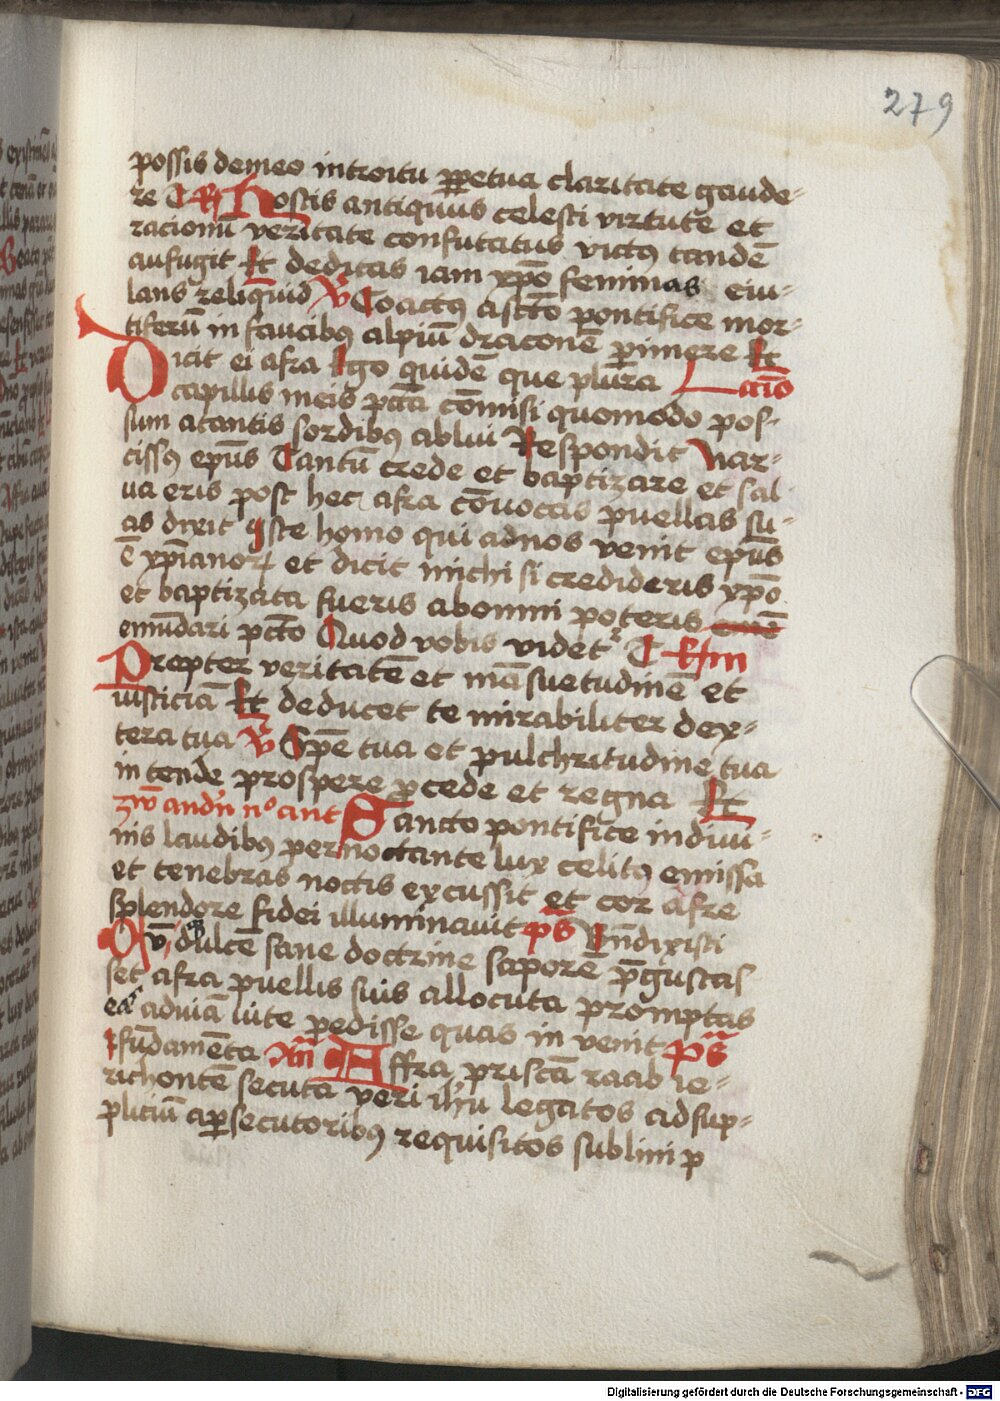 279
possis demeo introitu ꝑpetua claritate gaude-
re R Hostis antiquus celesti virtute et
racionū veritate confutatus victꝰ tandē
aufugit Et deditas iam xp̄o feminas eiu-
lans reliquid V Coactus a scto pontifice mor-
tiferū in faucibꝰ alpiū draconē ꝑimere Et
Dicit ei afra Ego quidē que plura Lccio
capillis meis pctā cōmisi quomodo pos-
sum a tantis sordibꝰ ablui Respondit Nar-
cissꝰ ep̄us Tantū crede et baptizare et sal
ua eris post hec afra cōuocas puellas su-
as dixit Iste homo qui ad nos venit ep̄us
ē xp̄ianorꝝ et dicit michi si credideris xp̄o
et baptizata fueris ab omni poteris
emūdari pctō Quod vobis videtr
Propter veritatē et māsuetudinē et
iusticiā Et deducet te mirabiliter dex-
tera tua V Spē tua et pulchritudine tua
intende prospere ꝓcede et regna Et
zw andn no ant Sancto pontifice in diui-
nis laudibꝰ pernoctante lux celitꝰ emissa
et tenebras noctis excussit et cor afre
splendore fidei illuminauit ps Bn̄dixisti
dulcē sane doctrine saporē p̄gustas
set afra puellis suis allocuta promptas
eas ad viā vite ꝑedisse quas in venit ps
Fūdamēta An Affra priscā raab ie-
richontē secuta veri ih̄u legatos ad sup-
pliciū a ꝑsecutoribꝰ requisitos sublimi p
Digitalisierung gefördert durch die Deutsche Forschungsgemeinschaft - DFG